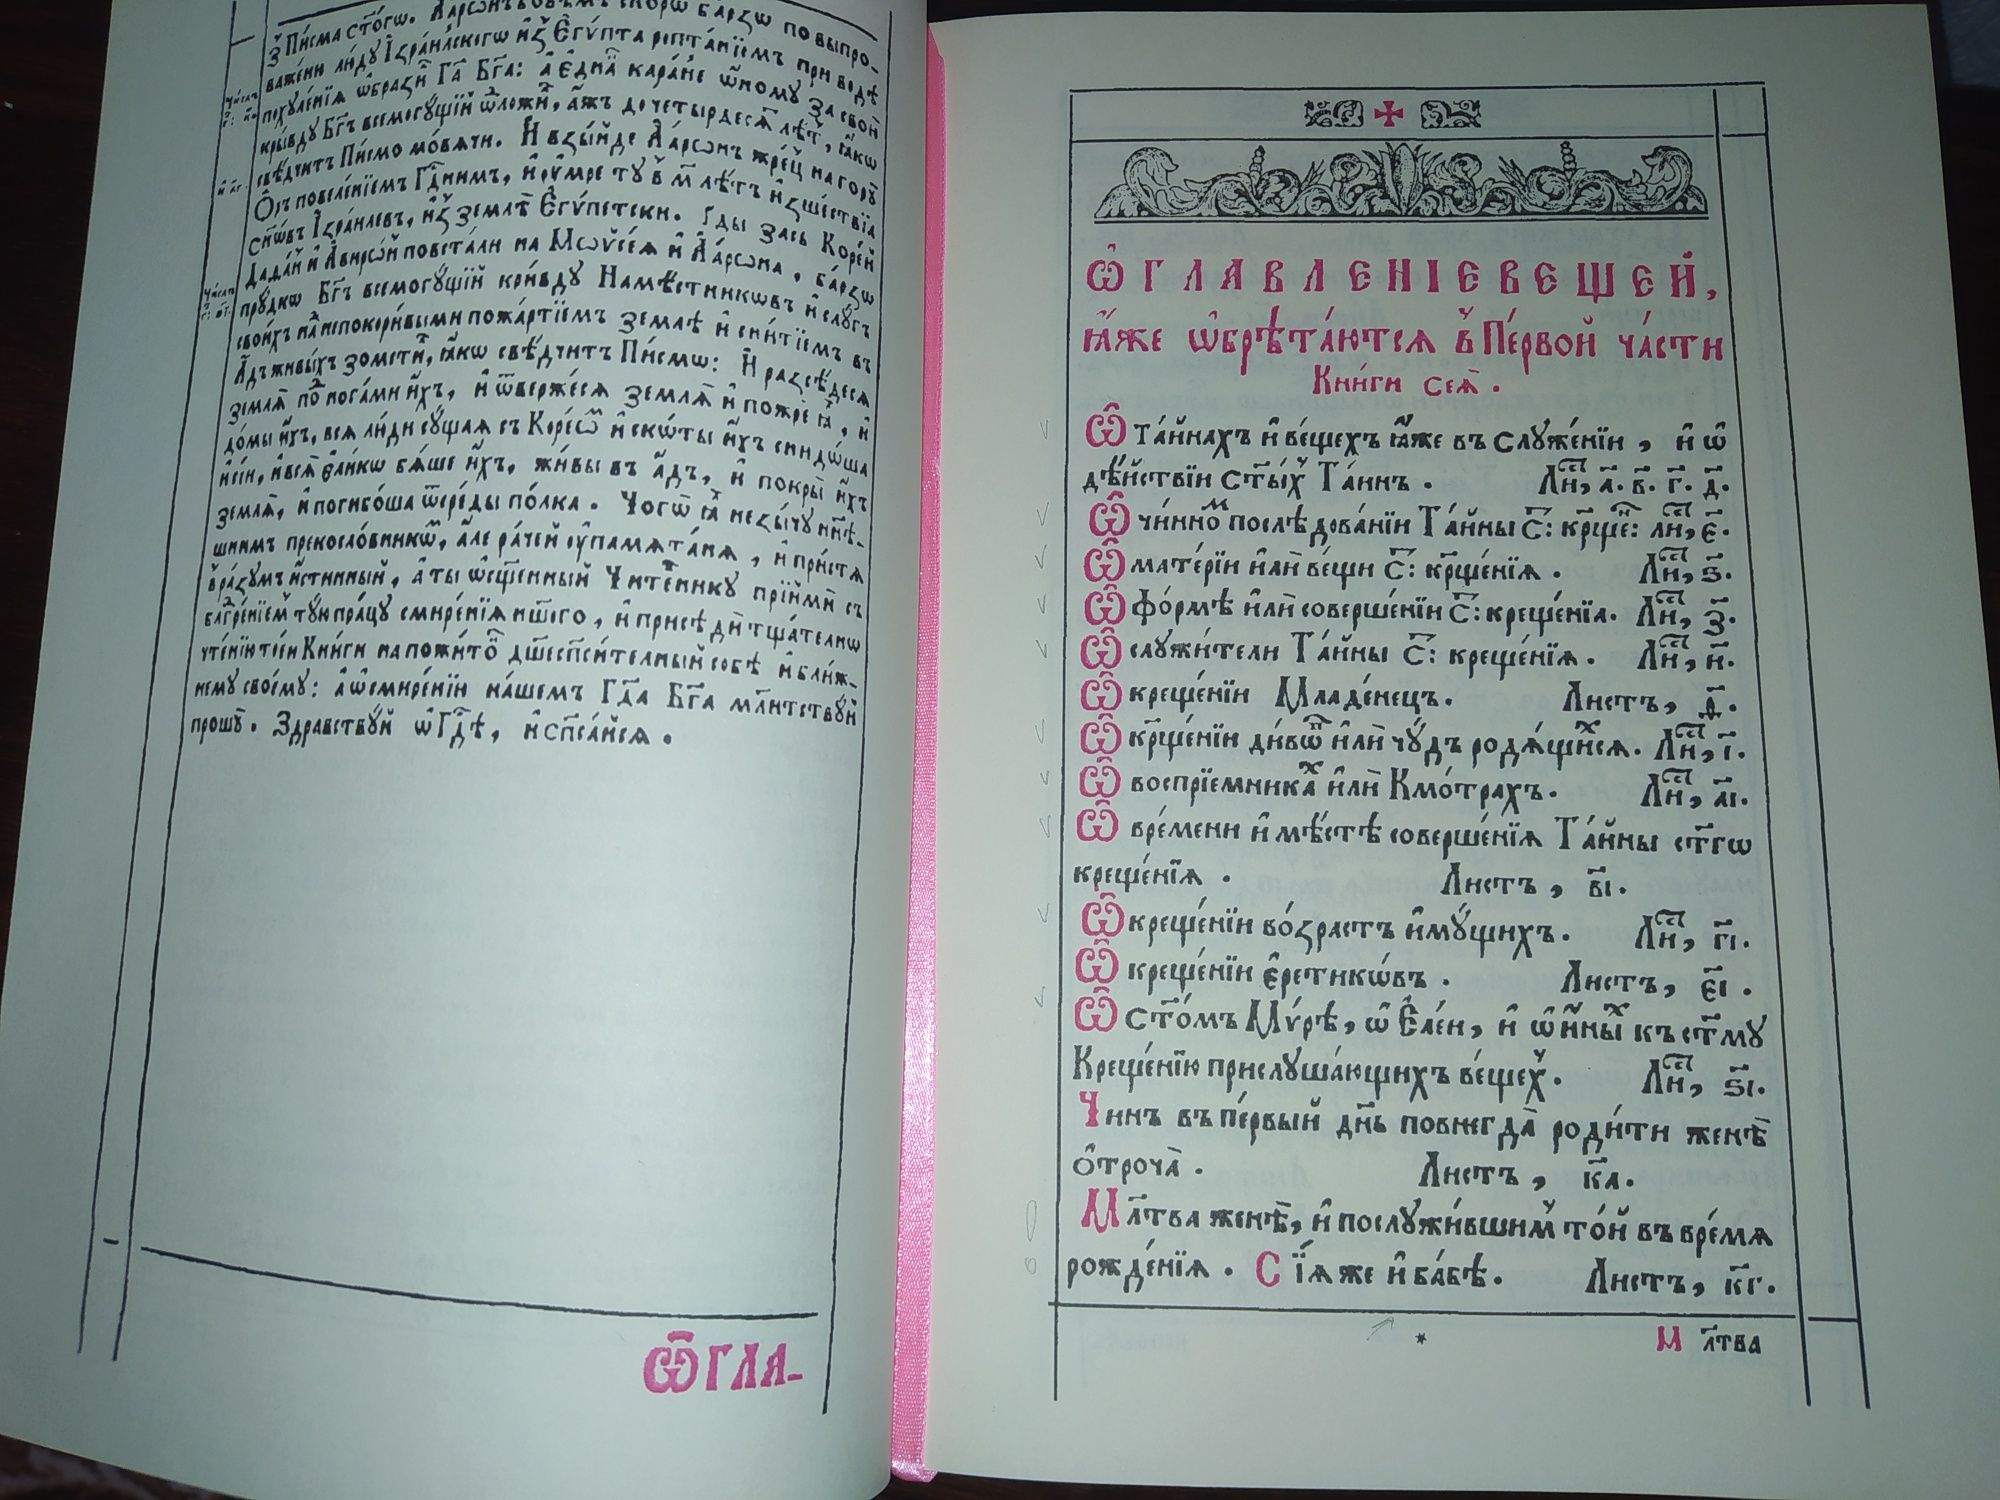 з̾ Пи́сма ст҃о́гѡ. Аарѡнъ бовѣмъ скорѡ ба́рзѡ по выпро-
важе́ни лю́ду Ізра́илскогѡ и҆з̾ Є҆гѵ́пта рептáнїемъ при водѣ
похуле́нїѧ ѡ҆брази́л̾ Гд҃а Бг҃а: а҆ є҆дна́к̾ кара́нїе ѡ҆ному за свою̀
кры́вду Бг҃ъ всемогу́щїй ѿложи́л̾, а҆́жъ до четырдесѧ́т̾ лѣ́т̾, ꙗ҆́кѡ
свѣ́дчитъ Пи́смо мо́вѧчи. И҆ взы́йде Аарѡнъ жре́ц̾ на гору̀
Ѻ҆́ръ повеле́нїемъ Гд҃нимъ, и҆ ѹ҆́мре ту̀ в̾ м҃ лѣ́тъ и҆зше́ствїѧ
сн҃ѡвъ Ізра́илевъ, и҆з̾ землѝ Є҆гѵ́петски. Гды зась Коре́й
Дада́н̾ и҆ Авирѡ́н̾ повста́ли на Мѡѵсе́ѧ и҆ Аарѡна, ба́рзѡ
пру́дкѡ Бг҃ъ всемогу́щїй кри́вду Намѣ́стникѡвъ и҆ слу́гъ
свои́хъ над̾ непокори́выми пожа́ртїемъ землѣ̀ и҆ сни́тїемъ въ
А҆́дъ живы́хъ зомсти́л̾, ꙗ҆́кѡ свѣ́дчитъ Пи́смѡ: И҆ разсѣ́десѧ
землѧ̀ под̾ нога́ми и҆́хъ, и҆ ѿверже́сѧ землѧ̀ и҆ пожрѐ ꙗ҆̀, и҆
до́мы и҆́хъ, всѧ лю́ди су́щаѧ съ Коре́ѡм̾ и҆ скѡты и҆́хъ снидо́ша
и҆ сі́и, и҆ всѧ̀ є҆ли́кѡ бѧ́ше и҆́хъ, жи́вы въ а҆́дъ, и҆ покры̀ и҆́хъ
землѧ̀, и҆ погибо́ша ѿ среды по́лка. Чогѡ̀ ꙗ҆̀ незы́чу нн҃ѣ-
шнимъ прекословникѡ́м̾, а҆́ле ра́чей ѹ҆памѧта́нѧ, и҆ при́стѧ
в̾ ра́зумъ и҆́стинный, а҆ ты̀ ѡ҆сщ҃е́нный Чите́лнику прїимѝ съ
блг҃ре́нїем̾ ту́ю пра́цу смире́нїѧ нш҃его, и҆ присѣдѝ тща́телнѡ
чте́нїю то́еи Кни́ги на пожи́то́к̾ дш҃еспⷭ҇и́телный собѣ̀ и҆ бли́ж-
нему своему̀: а҆ ѡ҆ смире́нїи на́шемъ Гд҃а Бг҃а мл҃итствуй
прошу̀. Здравству́й ѡ҆ Гд҃ѣ, и҆ сп҃са́йсѧ.
ѾГЛА-
Ѡ҆ГЛАВЛЕНІЕ ВЕЩЕЙ,
ꙗ҆́же ѡ҆брѣта́ютсѧ в̾ Пе́рвой ча́сти
Кни́ги сеѧ̀.
Ѡ҆ та́йнахъ и҆ ве́щехъ ꙗ҆́же въ служе́нїи, и҆ ѡ҆
дѣ́йствїи ст҃ы́х̾ Та́инъ. Лиⷭ҇, а҃. в҃. г҃. д҃.
Ѡ҆ чи́нно́м̾ послѣдова́нїи Та́йны С҃: кр҃ще́: лиⷭ҇, є҃.
Ѡ҆ мате́рїи и҆лѝ ве́щи С҃: кр҃ще́нїѧ. Лиⷭ҇, ѕ҃.
Ѡ҆ фо́рмѣ и҆лѝ соверше́нїи С҃: креще́нїѧ. Лиⷭ҇, з҃.
Ѡ҆ служи́тели Та́йны С҃: креще́нїѧ. Лиⷭ҇, и҃.
Ѡ҆ креще́нїи Младе́нецъ. Листъ, ѳ҃.
Ѡ҆ кр҃ще́нїи ди́вѡв̾ и҆лѝ чу́дъ родѧ́щихсѧ. Лиⷭ҇, і҃.
Ѡ҆ воспрїемника́х̾ и҆лѝ Кмо́трахъ. Лиⷭ҇, а҃і.
Ѡ҆ вре́мени и҆ мѣ́стѣ соверше́нїѧ Та́йны ст҃гѡ
креще́нїѧ. Листъ, в҃і.
Ѡ҆ креще́нїи во́зрастъ и҆му́щихъ. Лиⷭ҇, г҃і.
Ѡ҆ креще́нїи є҆ретикѡ́въ. Листъ, є҃і.
Ѡ҆ ст҃о́мъ Мѵ́рѣ, ѡ҆ Є҆ле́и, и҆ ѡ҆ и҆́нных̾ къ ст҃му
Креще́нїю прислуша́ющихъ ве́щех̾. Лиⷭ҇, ѕ҃і.
Чинъ въ пе́рвый дн҃ь повнегда̀ роди́ти женѣ̀
ѻ҆троча̀. Листъ, к҃а.
Мл҃тва женѣ̀, и҆ послужи́вшим̾ то́й въ вре́мѧ
рожде́нїѧ. Сїѧ́ же и҆ ба́бѣ. Листъ, к҃г.
* Мл҃тва